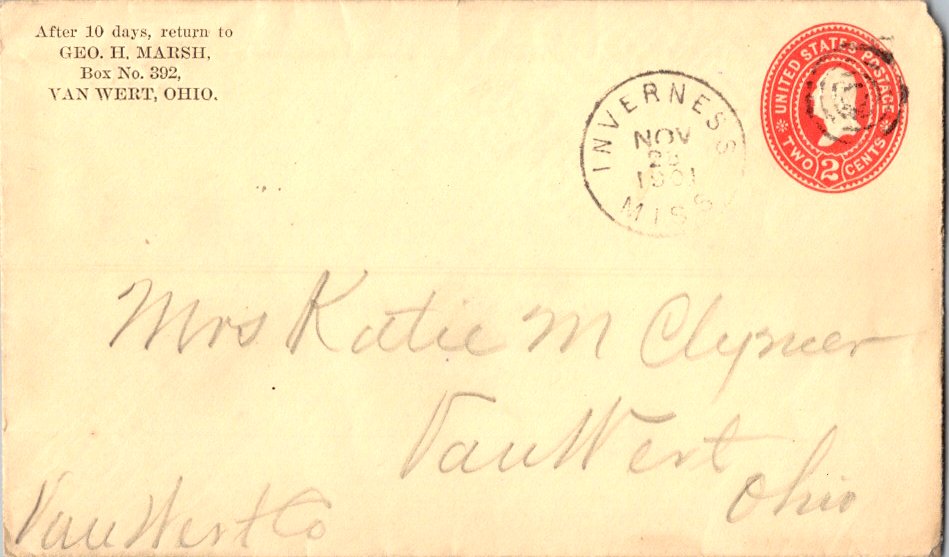 After 10 days, return to
GEO. H. MARSH,
Box No. 392,
VAN WERT, OHIO.
INVERNESS
NOV
1901
MISS
UNITED STATES POSTAGE
TWO 2 CENTS
Mrs Katie M Clymer
Van Wert
Ohio
Van Wert Co